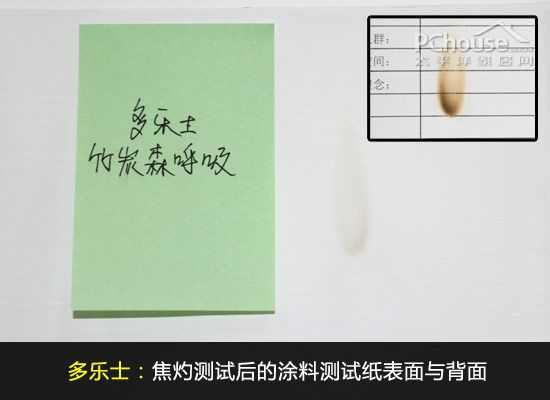 多乐士
竹炭森呼吸
群:
PChouse
太平洋家居网
间:
念:
多乐士：焦灼测试后的涂料测试纸表面与背面